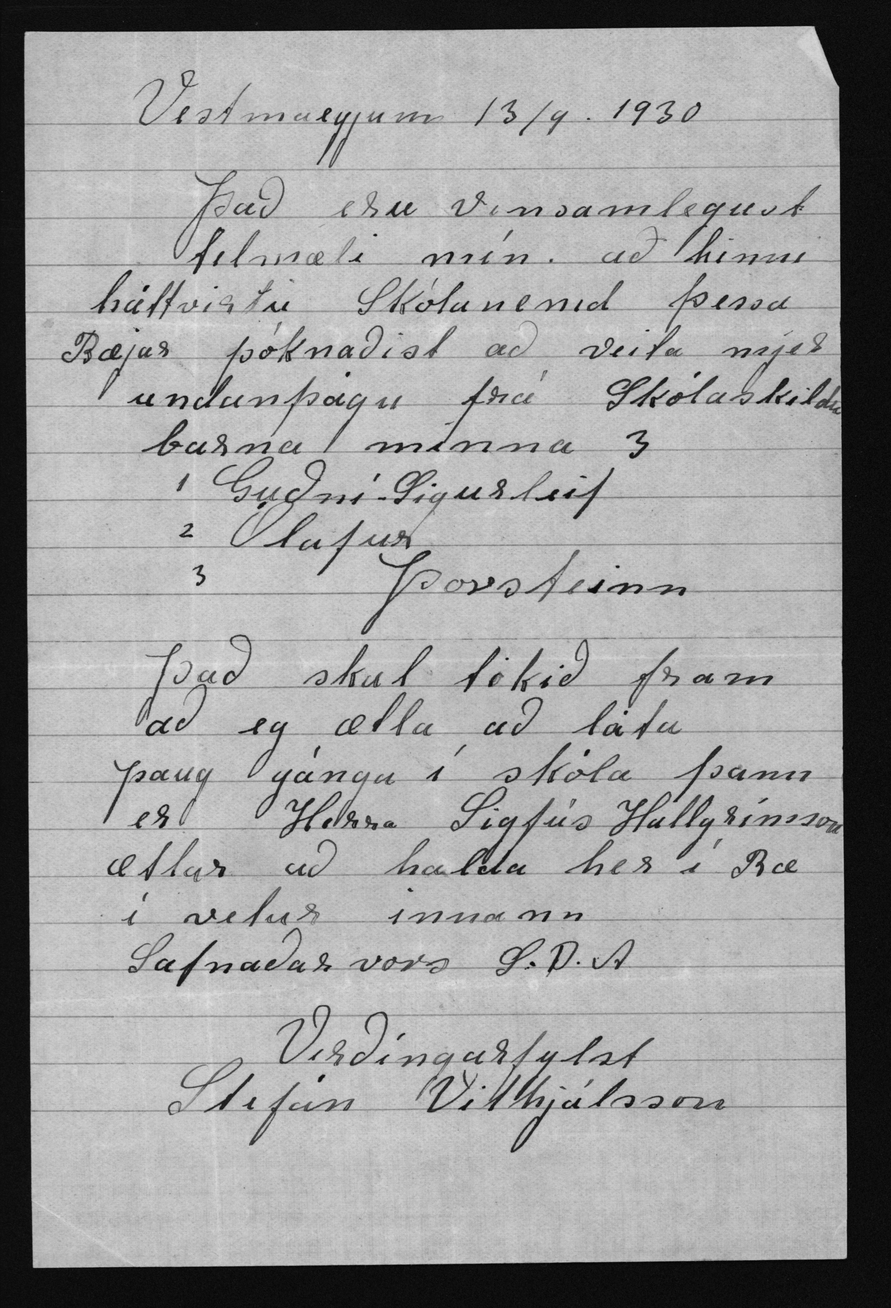 Vestmaeyjum 13/9. 1930
Það eru vinsamlegust
tilmæli mín. að hinni
háttvirtu Skólanemd þessa
Bæjar þóknaðist að veita mjer
undanþágu frá Skólaskildu
barna minna 3
1 Guðní-Sigurleif
2 Ólafur
3 Þorsteinn
Það skal tikið fram
að eg ætla að láta
þaug gánga í skóla þann
er Herra Sigfús Hallgrímsson
ætlar að halda her í Bæ
í vetur innann
Safnaðar vors S.D.A
Virðingarfylst
Stefán Vilhjálsson